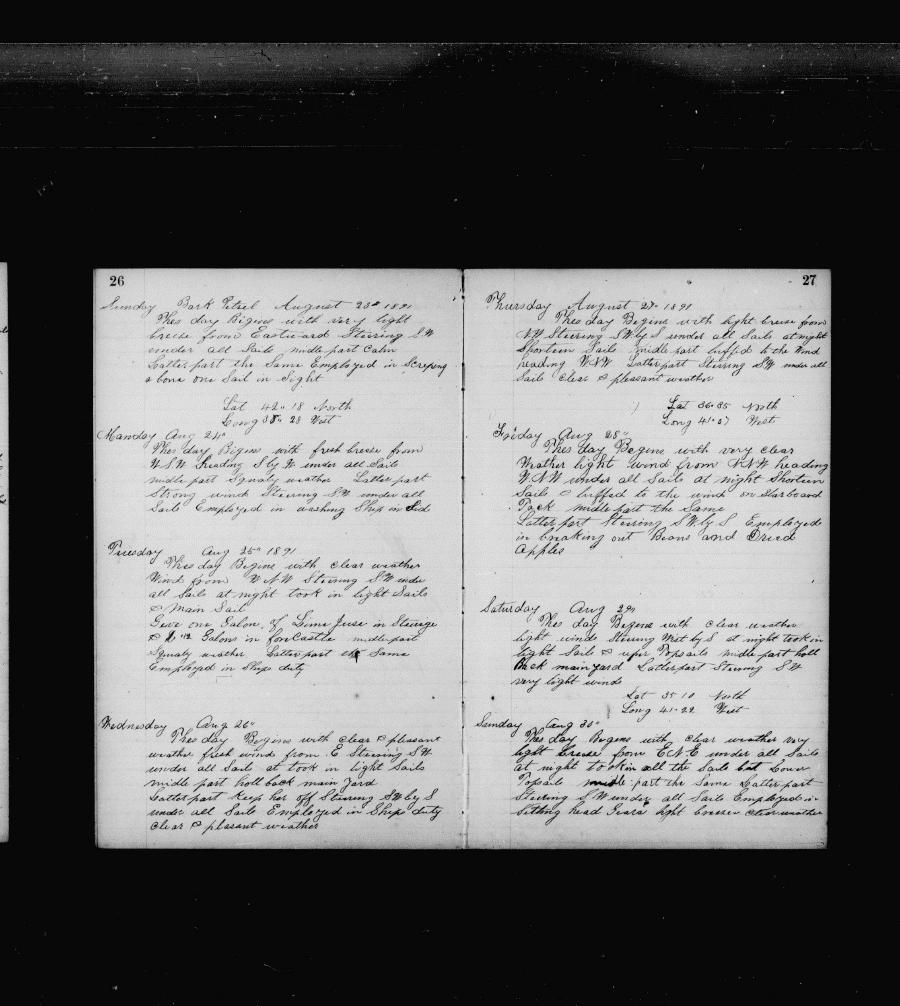 26
Sunday Bark Petrel August 23d 1891
Thes day Begins with very light
breise from Eastward Steering S.W
under all Sails midle part Calm
Latter part the Same Employed in Screping
a bone one Sail in Sight
Lat 42" 18 North
Long 38" 28 West
Monday Aug 24"
Thes day Bigins with fresh breese from
W.S.W heading S by W under all Sails
midle part Squaly weather Latter part
Strong wind Steering S.W under all
Sails Employed in washing Ship in Sid
Tuesday Aug 25" 1891
Thes day Begins with clear weather
Wind from W.N.W Steering S.W unde
all Sails at night took in light Sails
& Main Sail
Give one Galon of Lime juse in Steurge
& Galons in forCastle midle part
Squaly weather Latter part the Same
Employed in Ships duty
Wednesday Aug 26"
Thes day Begins with clear & pleasant
weather fresh winds from E Steering S.W.
under all Sails at took in light Sails
midle part holl back main yard
Latter part keep her off Steuring S.W by S
under all Sails Employed in Ships duty
clear & plasant weather
27
Thursday August 27" 1891
Thes day Begins with light breise from
NW Steering S.W by S under all Sails at night
Shorteen Sails midle part luffd to the Wind
heading W.N.W Latter part Steuring S.W under all
Sails Clear & pleasant weather
Lat 36.35 North
Long 41.07 West
Friday Aug 28"
Thes day Begens with very clear
Weather light Wind from N.N.W heading
W.N.W under all Sails at night Shorteen
Sails & luffed to the wind on Starboard
Tack midle part the Same
Latter part Steuring S.W. by S Employed
in breaking out Beans and Dried
Apples
Saturday Aug 29"
Thes day Begens with clear weather
light winds Steuring West by S at night took in
light Sails & refer Topsails midle part holl
Back main yard Latter part Steuring S.W
very light winds
Lat 35 10 North
Long 41.22 West
Sunday Aug 30"
Thes day Begens with clear weather very
light breise from E.N.E under all Sails
at night took in all the Sails but Lower
Topsails midle part the Same Latter part
Steering S.W under all Sails Employed in
Sitting head Gears light breeze clear weather